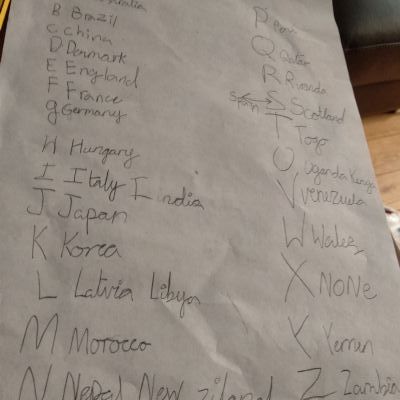 B Brazil
C China
D Denmark
E England
F France
g Germany
H Hungary
I Italy India
J Japan
K Korea
L Latvia Libya
M Morocco
N Nepal New ziland
P Peru
Q Qatar
R Rwanda
Spain S Scotland
T Togo
U Uganda Kenya
V Venezuela
W Wales
X NONe
Y Yemen
Z Zambia